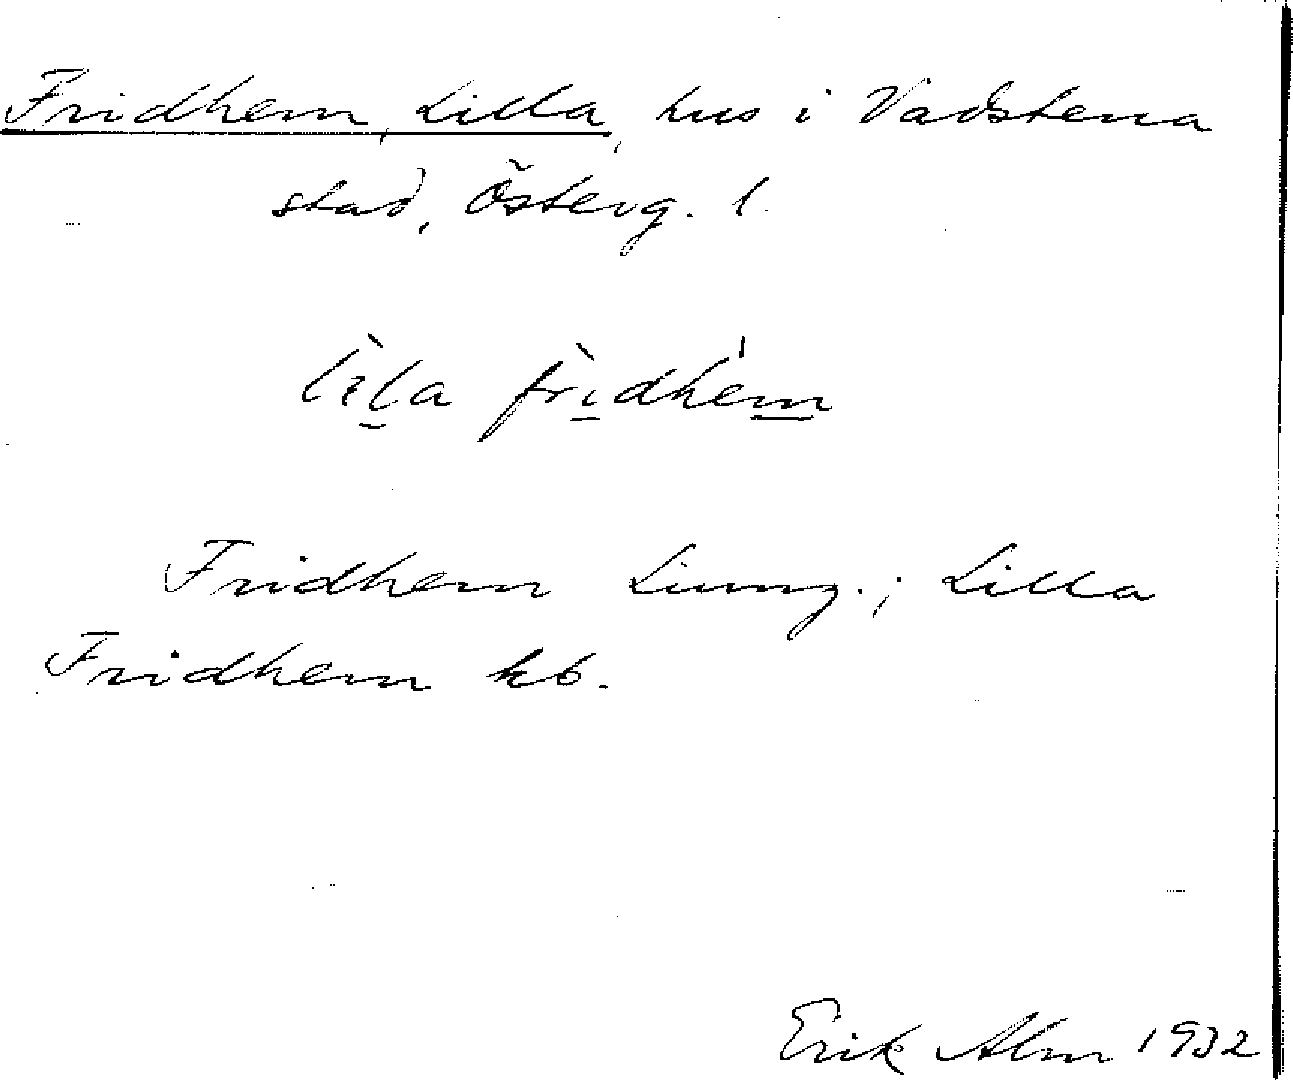 Fridhem, Lilla, hus i Vadstena
stad, Österg. l.
lila fridhem
Fridhem Liung.; Lilla
Fridhem kb.
Erik Alm 1932